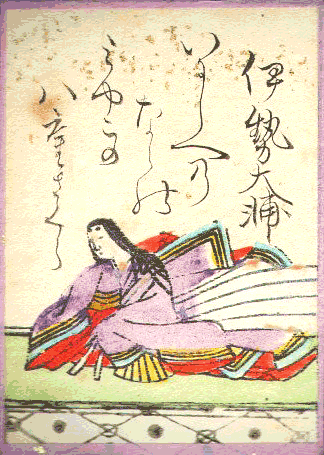 伊勢大輔
いにしへの
ならの
みやこの
八重さくら